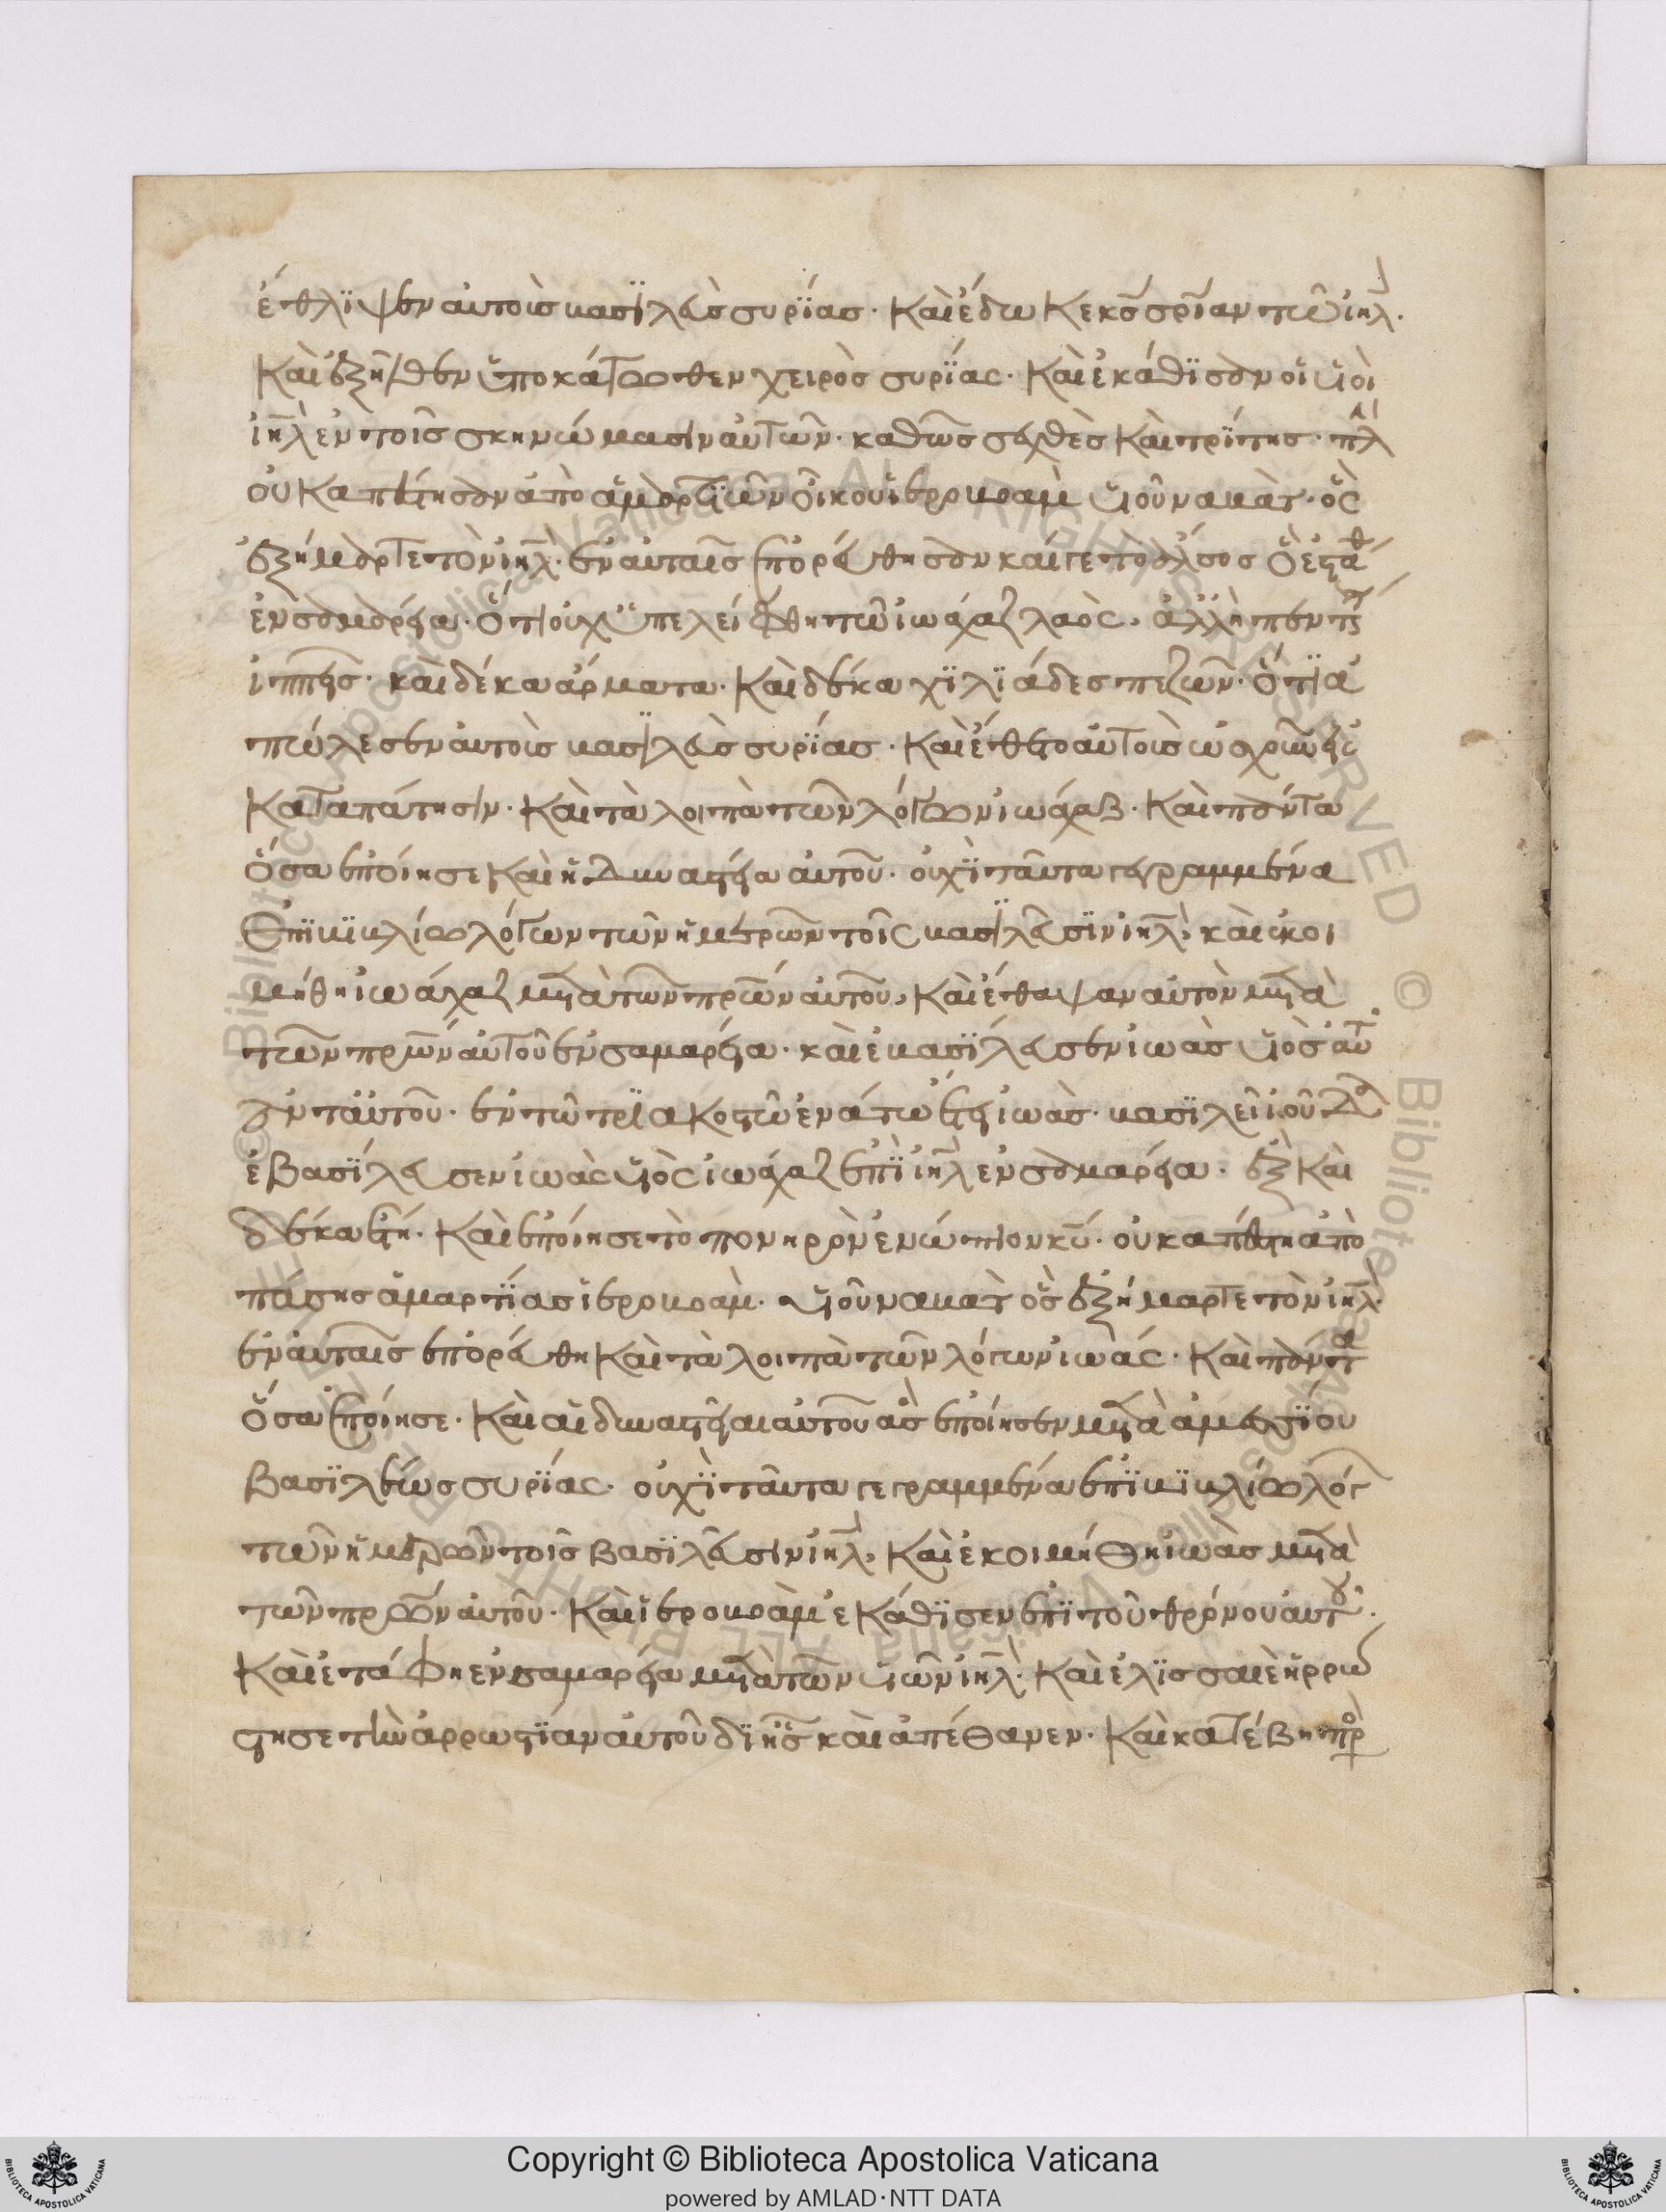 ἔθλιψεν αὐτοὺς βασιλεὺς συρίας· Καὶ ἔδωκε κς σρίαν τῶ ιηλ·
Καὶ ἐξῆλθεν ὑποκάτωθεν χειρὸς συρίας· Καὶ ἐκάθισαν οἱ υἱοὶ
ιηλ ἐν τοῖς σκηνώμασιν αὐτῶν· καθὼς ἐχθὲς Καὶ τρίτης· πλ
οὐκ ἀπέστησαν ἀπὸ ἁμαρτιῶν οἴκου ἱεροβοὰμ υἱοῦ ναβάτ· ὃς
ἐξήμαρτε τὸν ιηλ· ἐν αὐταῖς ἐπορεύθησαν καί γε τὸ ἄλσος ὃ ἐστάθ
ἐν σαμαρεία· Ὅτι οὐχ ὑπελείφθη τῶ ἰωάχαζ λαὸς, ἀλλ' ἢ πεντς
ἱππεῖς· καὶ δέκα ἅρματα· Καὶ δέκα χιλιάδες πεζῶν· Ὅτι ἀ
πώλεσεν αὐτοὺς βασιλεὺς συρίας· Καὶ ἔθετο αὐτοὺς ὡς χοῦν εἰς
Καταπάτησιν· Καὶ τὰ λοιπὰ τῶν λόγων ἰωάχαζ· Καὶ πάντα
ὅσα ἐποίησε Καὶ ἡ δυναστεία αὐτοῦ· οὐχὶ ταῦτα γεγραμμένα
Ἐπὶ βιβλίω λόγων τῶν ἡμερῶν τοῖς βασιλεῦσιν ιηλ, καὶ ἐκοι
μήθη ἰωάχαζ μετὰ τῶν πρων αὐτοῦ, Καὶ ἔθαψαν αὐτὸν μετὰ
τῶν πρων αὐτοῦ ἐν σαμαρεία· καὶ ἐβασίλευσεν ἰωὰς υἱὸς αὐτ
ἀντ' αὐτοῦ· ἐν τῶ τριακοστῶ ἐνάτω ἔτει ἰωὰς· βασιλεῖ ἰούδα
ἐβασίλευσεν ἰωὰς υἱὸς ἰωάχαζ ἐπὶ ιηλ ἐν σαμαρεία· ἓξ Καὶ
δέκα ἔτη· Καὶ ἐποίησε τὸ πονηρὸν ἐνώπιον κυ· οὐκ ἀπέστη ἀπὸ
πάσης ἁμαρτίας ἱεροβοὰμ· υἱοῦ ναβὰτ ὃς ἐξήμαρτε τὸν ιηλ·
ἐν αὐταῖς ἐπορεύθη Καὶ τὰ λοιπὰ τῶν λόγων ἰωάς· Καὶ πάντα
ὅσα ἐποίησε· Καὶ αἱ δυναστεῖαι αὐτοῦ ἃς ἐποίησεν μετὰ ἀμεσσίου
βασιλέως συρίας· οὐχὶ ταῦτα γεγραμμένα ἐπὶ βιβλίω λόγ
τῶν ἡμερῶν τοῖς βασιλεῦσιν ιηλ, Καὶ ἐκοιμήθη ἰωὰς μετὰ
τῶν πρων αὐτοῦ· Καὶ ἱεροβοὰμ ἐκάθισεν ἐπὶ τοῦ θρόνου αὐτοῦ·
Καὶ ἐτάφη ἐν σαμαρεία μετὰ τῶν υἱῶν ιηλ· Καὶ ἐλισσαιὲ ἠρρώ
στησε τὴν ἀρρωστίαν αὐτοῦ δι' ἧς καὶ ἀπέθανεν· Καὶ κατέβη πρ
Copyright © Biblioteca Apostolica Vaticana
powered by AMLAD·NTT DATA